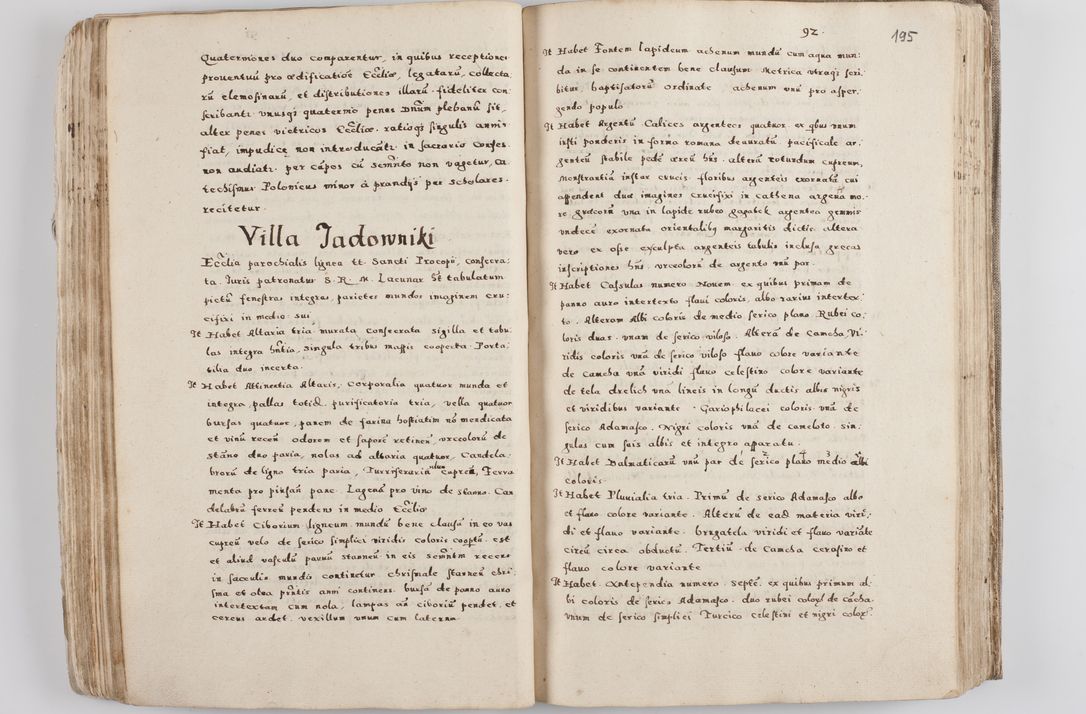 Quaterniones duo comparentur, in quibus receptiones
prouentuũ pro ædificatiõe Eccliæ, legatarũ, collecta
rũ elemosinarũ, et distributiones illarũ fideliter con
scribanti vnusqz quaternio penes Dnũm plebanũ sit,
alter penes vietricos Eccliæ. ratioqz singulis annis
fiat, impudicæ non introducãti in sacrario Confes.
non audiati per cãpos cũ semñto non vagetur, Ca
techismus Polonicus minor à prandijs per scholares.
recitetur.
Villa Jadowniki
Ecclia parochialis lignea tt. Sancti Procopij, consecra:
ta. Juris patronatus S. R. M. Lacunar et tabulatum
pictũ fenestras integras, parietes mundos imaginem cru:
cifixi in medio sui
It Habet Altaria tria murata consecrata sigilla et tobu
las integra hñtia, singula tribus mappis cooperta. Porta:
tilia duo incerta.
It Habet Attinentia Altaris, Corporalia quatuor munda et
integra, pallas totid. purificatoria tria, vella quatuor
bursas quatuor, panem de farina hostiatim nõ mendicata
et vinũ recen̄ odorem et saporẽ retinen̄, vrceolorũ de
stãno duo paria, nolas ad altaria quatuor, Candela:
brorũ de ligno tria paria, Turriferaria cupreũ, Ferra
menta pro pinsañ pane. Lagenã pro vino de stanno. Can
delabrũ ferreũ pendens in medio Eccliæ
It Habet Ciborium ligneum mundũ bene clausũ in eo vas
cupreũ velo de serico simplici viridis coloris coopẽtũ. est
et aliud vasculũ paruũ stanneũ in eis semñtm recens
in saculis mundis continetur chrismale stanneũ chri:
sma et olea pñtis anni continens. bursã de panno auro
intertextam cum nola, lampas añ ciboriũ pendet. et
cereus ardet. vexillum vnum cum laterna
92.
195
It Habet Fontem lapideum aehenum mundũ cum aqua mun:
da in se continentem bene clausum Metrica vtraqz scri:
bitur, baptisatorũ ordinate aehenum vnũ pro asper:
gendo populo
It Habet Argentũ Calices argenteos quatuor. ex qbus vnum
iusti ponderis in forma romana deauratũ, pacificale ar:
genteũ stabile pedẽ æreũ hñs. alterũ rotundum cupreum,
Monstrantiã instar crucis floribus argenteis exornatã cui
appendent duæ imagines crucifixi in cathena argeña mo:
re græcorũ vna in lapide rubeo gagatek argenteo gemmis
vndecẽ exornata orientalibus margaritis dictis altera
vero ex osse exsculpta argenteis tabulis inclusa grecas
inscriptiones hñs. vrceolorũ de argento vnũ par.
It Habet Casulas numero. Nouem. ex quibus primam de
panno auro intertexto flaui coloris, albo rarius intertex:
to. Alteram Albi coloris de medio serico plano. Rubei co:
loris duas. vnam de serico viloso. Alterã de Camcha, Vi:
ridis coloris vnã de serico viloso flauo colore variante
de Camcha vnã viridi flauo celestino colore variante
de tela drelich vnã lineis in longũ ductis albis nigris
et viridibus variante. Gariophilacei coloris vnã de
serico Adamasco. Nigri coloris vnã de cameloto. sin:
gulas cum suis albis et integro apparatu.
It Habet Dalmaticarũ vnũ par de serico plano medio albi
coloris
It Habet Pluuialia tria. Primũ de serico Adamasco albo
et flauo colore variante. Alterũ de ead. materia viri:
di et flauo variante. brugatela viridi et flauo variãte
circũ circa obductũ. Tertiũ de Camcha cerasino et
flauo colore variante
It Habet. Antependia numero. septẽ. ex quibus primum al:
bi coloris de serico Adamasco. duo rubei colorz de cãcha.
vnum de serico simplici Turcico celestini et nigri colorz